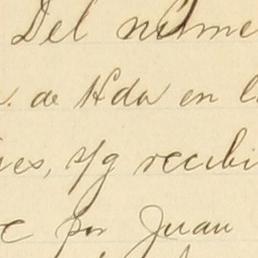 Del núme
de Hda en l
res, s/g recibi
por Juan